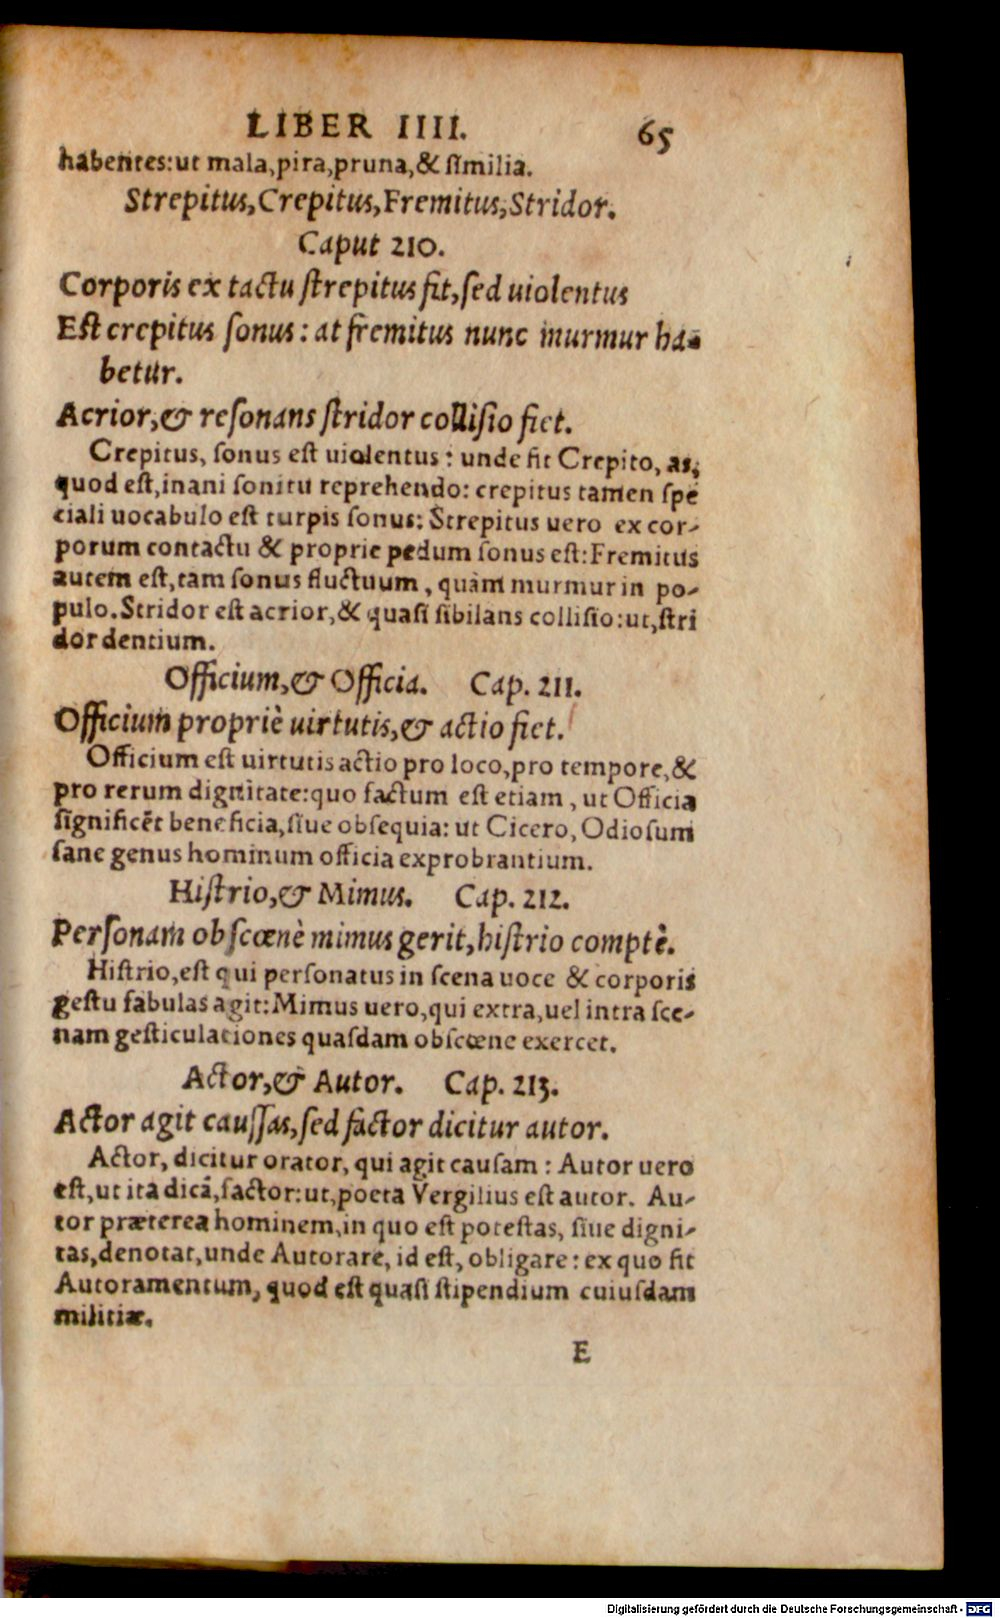 LIBER IIII. 65
habentes: ut mala, pira, pruna, & similia.
Strepitus, Crepitus, Fremitus, Stridor.
Caput 210.
Corporis ex tactu strepitus fit, sed uiolentus
Est crepitus sonus: at fremitus nunc murmur ha-
betur.
Acrior, & resonans stridor collisio fiet.
Crepitus, sonus est uiolentus: unde fit Crepito, as,
quod est, inani sonitu reprehendo: crepitus tamen spe
ciali uocabulo est turpis sonus: Strepitus uero ex cor-
porum contactu & proprie pedum sonus est: Fremitus
autem est, tam sonus fluctuum, quàm murmur in po-
pulo. Stridor est acrior, & quasi sibilans collisio: ut, stri
dor dentium.
Officium, & Officia. Cap. 211.
Officium propriè uirtutis, & actio fiet.
Officium est uirtutis actio pro loco, pro tempore, &
pro rerum dignitate: quo factum est etiam, ut Officia
significēt beneficia, siue obsequia: ut Cicero, Odiosum
sane genus hominum officia exprobrantium.
Histrio, & Mimus. Cap. 212.
Personam obscœnè mimus gerit, histrio comptè.
Histrio, est qui personatus in scena uoce & corporis
gestu fabulas agit: Mimus uero, qui extra, uel intra sce-
nam gesticulationes quasdam obscœne exercet.
Actor, & Autor. Cap. 213.
Actor agit caussas, sed factor dicitur autor.
Actor, dicitur orator, qui agit causam: Autor uero
est, ut ita dicā, factor: ut, poeta Vergilius est autor. Au-
tor præterea hominem, in quo est potestas, siue digni-
tas, denotat, unde Autorare, id est, obligare: ex quo fit
Autoramentum, quod est quasi stipendium cuiusdam
militiæ.
E
Digitalisierung gefördert durch die Deutsche Forschungsgemeinschaft - DFG